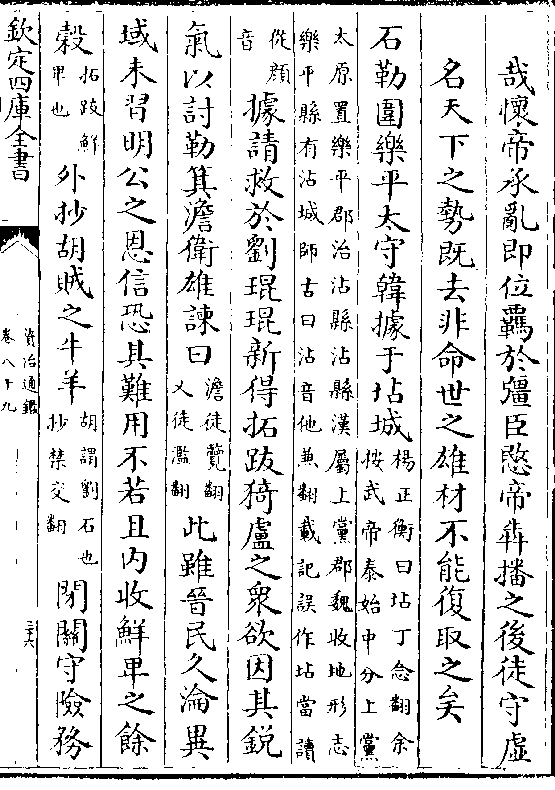 哉懷帝承亂即位羈於彊臣愍帝奔播之後徒守虛
名天下之勢既去非命世之雄材不能復取之矣
石勒圍樂平太守韓據于坫城楊正衡曰坫丁念翻余
按武帝泰始中分上黨
太原置樂平郡治沾縣沾縣漢屬上黨郡魏收地形志
樂平縣有沾城師古曰沾音他兼翻載記誤作坫當讀
從顔
音據請救於劉琨琨新得拓跋猗盧之衆欲因其鋭
氣以討勒箕澹衛雄諫曰澹徒覽翻
又徒濫翻此雖晉民久淪異
域未習明公之恩信恐其難用不若且内收鮮卑之餘
穀拓跋鮮
卑也外抄胡賊之牛羊胡謂劉石也
抄楚交翻閉關守險務
欽定四庫全書
資治通鑑
卷八十九
三十六